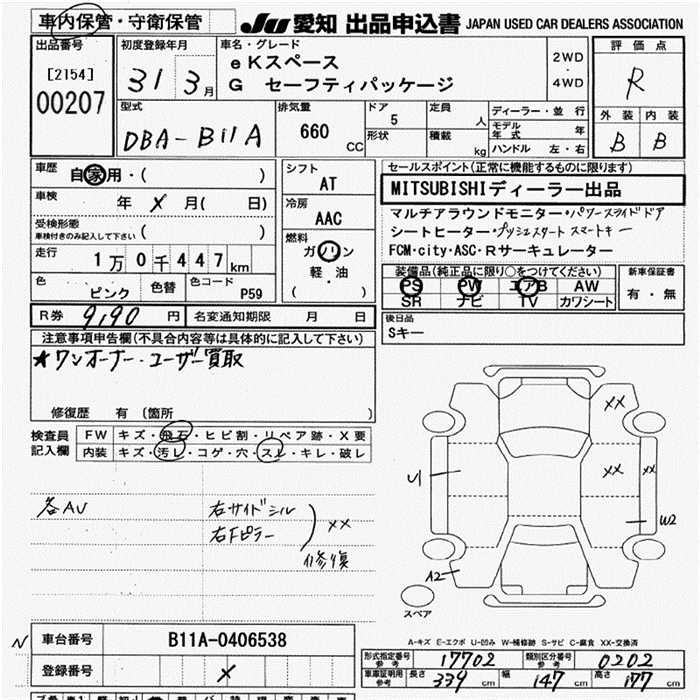 車内保管・守衛保管
JU 愛知 出品申込書 JAPAN USED CAR DEALERS ASSOCIATION
出品番号
[2154]
00207
初度登録年月
31 3月
車名・グレード
eKスペース
G セーフティパッケージ
2WD
・
4WD
評価点
R
外装 内装
B B
型式
DBA-B11A
排気量
660 CC
ドア
5
形状
定員
人
積載
kg
ディーラー・並行
モデル年式 年
ハンドル 左・右
車歴
自家用・( )
車検
年 X 月( 日)
受検形態
車検付きのみ記入して下さい ( )
走行
1万0千447km
色
ピンク
色替
色コード
P59
シフト
AT
冷房
AAC
燃料
ガソリン
軽・油
( )
セールスポイント(正常に機能するものに限ります)
MITSUBISHIディーラー出品
マルチアラウンドモニター・パワースライドドア
シートヒーター・プッシュスタート スマートキー
FCM・city・ASC・Rサーキュレーター
装備品(純正品に限り○をつけてください)
PS PW エアB AW
SR ナビ TV カワシート
新車保証書
有・無
後日品
Sキー
R券 9,190 円
名変通知期限 月 日
注意事項申告欄(不具合内容等は具体的に記入して下さい)
★ワンオーナー・ユーザー買取
修復歴 有(箇所 )
検査員
記入欄
FW キズ・飛石・ヒビ割・リペア跡・X要
内装 キズ・汚レ・コゲ・穴・スレ・キレ・破レ
各AU
右サイドシル
右Fピラー
XX
修復
XX
XX
XX
U1
W2
A2
スペア
A-キズ E-エクボ U-凹み W-補修跡 S-サビ C-腐食 XX-交換済
N
車台番号 B11A-0406538
登録番号 X
形式指定番号
参考
17702
類別区分番号
参考
0202
車庫証明用
参考
長さ 339 cm
幅 147 cm
高さ 177 cm